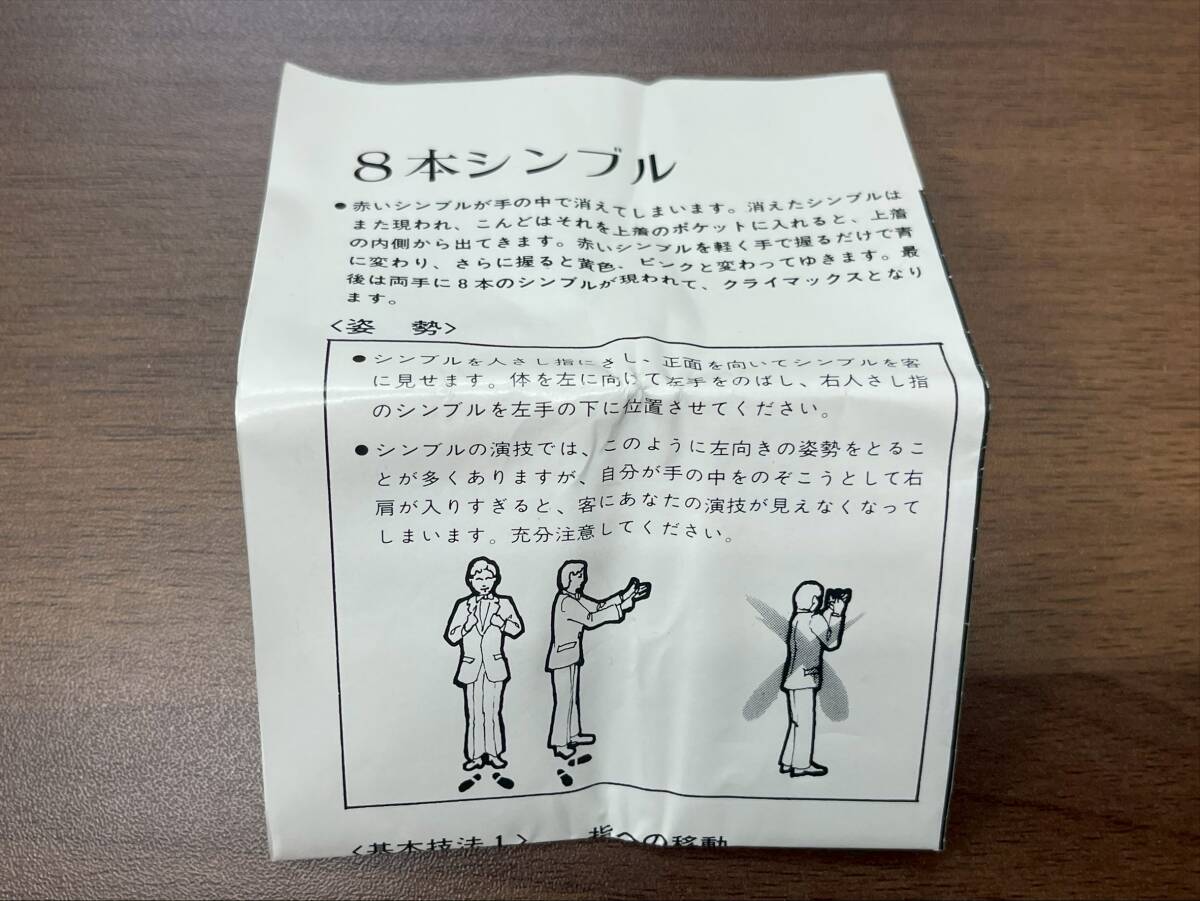 8本シンブル
●赤いシンブルが手の中で消えてしまいます。消えたシンブルは
また現われ、こんどはそれを上着のポケットに入れると、上着
の内側から出てきます。赤いシンブルを軽く手で握るだけで青
に変わり、さらに握ると黄色、ピンクと変わってゆきます。最
後は両手に8本のシンブルが現われて、クライマックスとなり
ます。
〈姿 勢〉
●シンブルを人さし指にさし、正面を向いてシンブルを客
に見せます。体を左に向けて左手をのばし、右人さし指
のシンブルを左手の下に位置させてください。
●シンブルの演技では、このように左向きの姿勢をとるこ
とが多くありますが、自分が手の中をのぞこうとして右
肩が入りすぎると、客にあなたの演技が見えなくなって
しまいます。充分注意してください。
〈基本技法1〉 指への移動